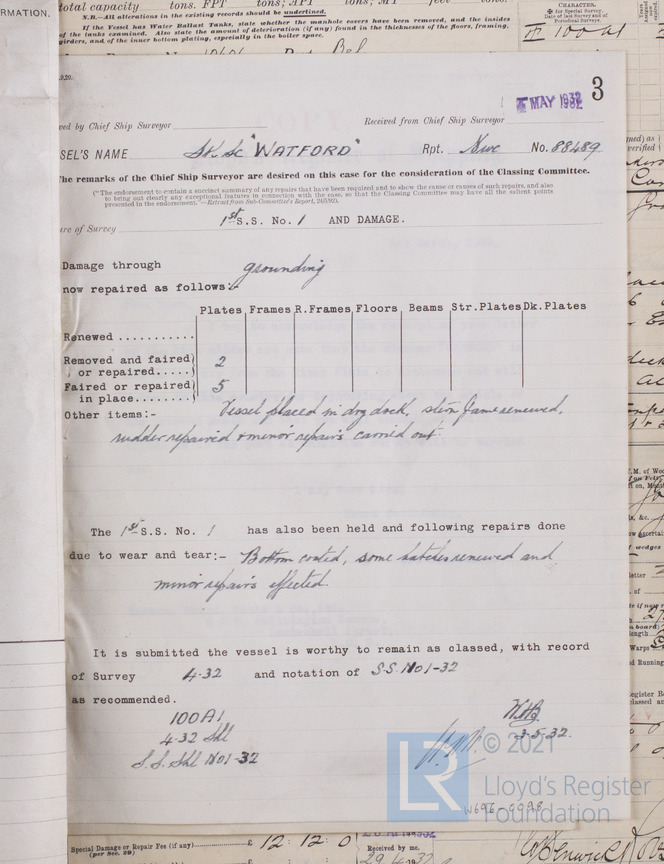 RMATION.
total capacity tons. FPT tons; APT tons; MT feet tons.
N.B.—All alterations in the existing records should be underlined.
If the Vessel has Water Ballast Tanks, state whether the manhole covers have been removed, and the insides
of the tanks examined. Also state the amount of deterioration (if any) found in the thicknesses of the floors, framing,
girders, and of the inner bottom plating, especially in the boiler space.
CHARACTER.
100 A1
4 MAY 1932
3
ved by Chief Ship Surveyor
Received from Chief Ship Surveyor
SEL'S NAME St. Sc "WATFORD" Rpt. Nwc No. 88489
The remarks of the Chief Ship Surveyor are desired on this case for the consideration of the Classing Committee.
("The endorsement to contain a succinct summary of any repairs that have been required and to show the cause or causes of such repairs, and also
to bring out clearly any exceptional features in connection with the case, so that the Classing Committee may have all the salient points
presented in the endorsement."—Extract from Sub-Committee's Report, 24/5/92).
ure of Survey 1st S.S. No. 1 AND DAMAGE.
Damage through grounding
now repaired as follows:-
Plates Frames R.Frames Floors Beams Str.Plates Dk.Plates
Renewed ...........
Removed and faired
or repaired..... 2
Faired or repaired
in place........ 5
Other items:- Vessel placed in dry dock, stern frame renewed,
rudder repaired & minor repairs carried out.
The 1st S.S. No. 1 has also been held and following repairs done
due to wear and tear:- Bottom coated, some hatches renewed and
minor repairs effected.
It is submitted the vessel is worthy to remain as classed, with record
of Survey 4·32 and notation of S.S. No1-32
as recommended.
100A1
4·32 Shl
S.S. Shl No1-32
3·5·32.
LR
© 2021
Lloyd's Register
Foundation
W696-0098
Special Damage or Repair Fee (if any) £ 12 : 12 : 0
(per Sec. 29)
Received by me.